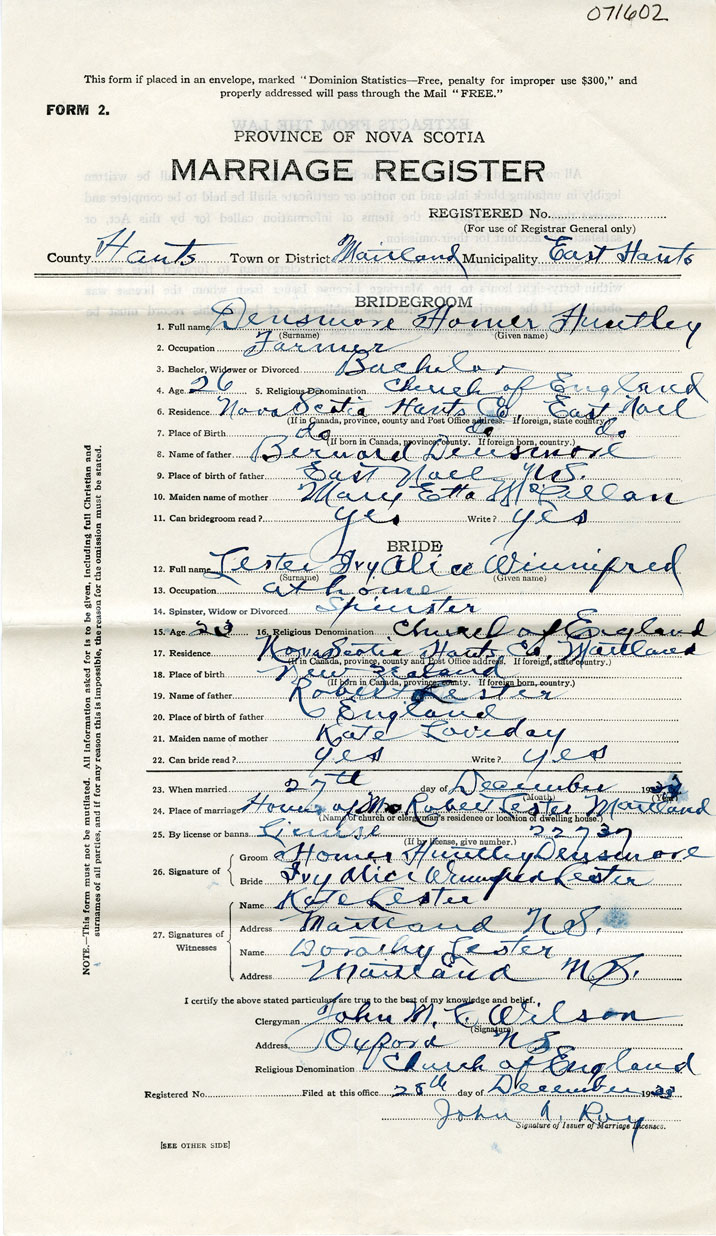 071602
This form if placed in an envelope, marked "Dominion Statistics—Free, penalty for improper use $300," and
properly addressed will pass through the Mail "FREE."
FORM 2.
PROVINCE OF NOVA SCOTIA
MARRIAGE REGISTER
REGISTERED No.
(For use of Registrar General only)
County Hants Town or District Maitland Municipality East Hants
BRIDEGROOM
1. Full name Densmore Homer Huntley
(Surname) (Given name)
2. Occupation Farmer
3. Bachelor, Widower or Divorced Bachelor
4. Age 26 5. Religious Denomination Church of England
6. Residence Nova Scotia Hants Co. East Noel
(If in Canada, province, county and Post Office address. If foreign, state country.)
7. Place of Birth do do do
(If born in Canada, province, county. If foreign born, country.)
8. Name of father Bernard Densmore
9. Place of birth of father East Noel N.S.
10. Maiden name of mother Mary Etta McLellan
11. Can bridegroom read? yes Write? yes
BRIDE
12. Full name Lester Ivy Alice Winnifred
(Surname) (Given name)
13. Occupation at home
14. Spinster, Widow or Divorced Spinster
15. Age 23 16. Religious Denomination Church of England
17. Residence Nova Scotia Hants Co. Maitland
(If in Canada, province, county and Post Office address. If foreign, state country.)
18. Place of birth New Zealand
(If born in Canada, province, county. If foreign born, country.)
19. Name of father Robert Lester
20. Place of birth of father England
21. Maiden name of mother Kate Loveday
22. Can bride read? yes Write? yes
23. When married 27th day of December 193
(Month) (Year)
24. Place of marriage Home of Mr Robert Lester Maitland
(Name of church or clergyman's residence or location of dwelling house.)
25. By license or banns License 22737
(If by license, give number.)
26. Signature of Groom Homer Huntley Densmore
Bride Ivy Alice Winnifred Lester
27. Signatures of Witnesses Name Kate Lester
Address Maitland N.S.
Name Dorothy Lester
Address Maitland N.S.
I certify the above stated particulars are true to the best of my knowledge and belief.
Clergyman John M. C. Wilson
(Signature)
Address Oxford N.S.
Religious Denomination Church of England
Registered No. Filed at this office 28th day of December 193
John A. Roy
Signature of Issuer of Marriage Licenses.
[SEE OTHER SIDE]
NOTE.—This form must not be mutilated. All information asked for is to be given, including full Christian and
surnames of all parties, and if for any reason this is impossible, the reason for the omission must be stated.